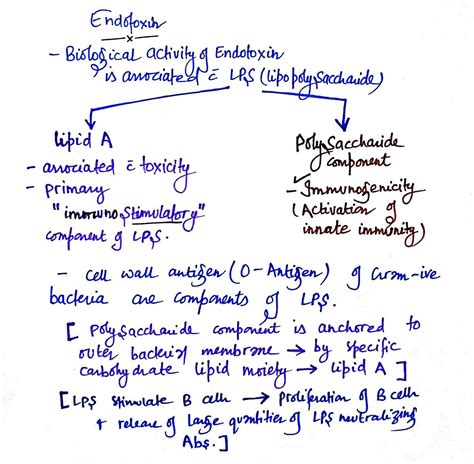 Endotoxin
x
- Biological activity of Endotoxin
is associated c̄ LPS (lipopolysaccharide)
lipid A
- associated c̄ toxicity
- primary
"immuno stimulatory"
component of LPS.
Polysaccharide
component
- Immunogenicity
(Activation of
innate immunity)
- cell wall antigen (O-Antigen) of Gram -ive
bacteria are components of LPS.
[ Polysaccharide component is anchored to
outer bacterial membrane → by specific
carbohydrate lipid moiety → lipid A ]
[LPS stimulate B cell → proliferation of B cells
+ release of large quantities of LPS neutralizing
Abs.]